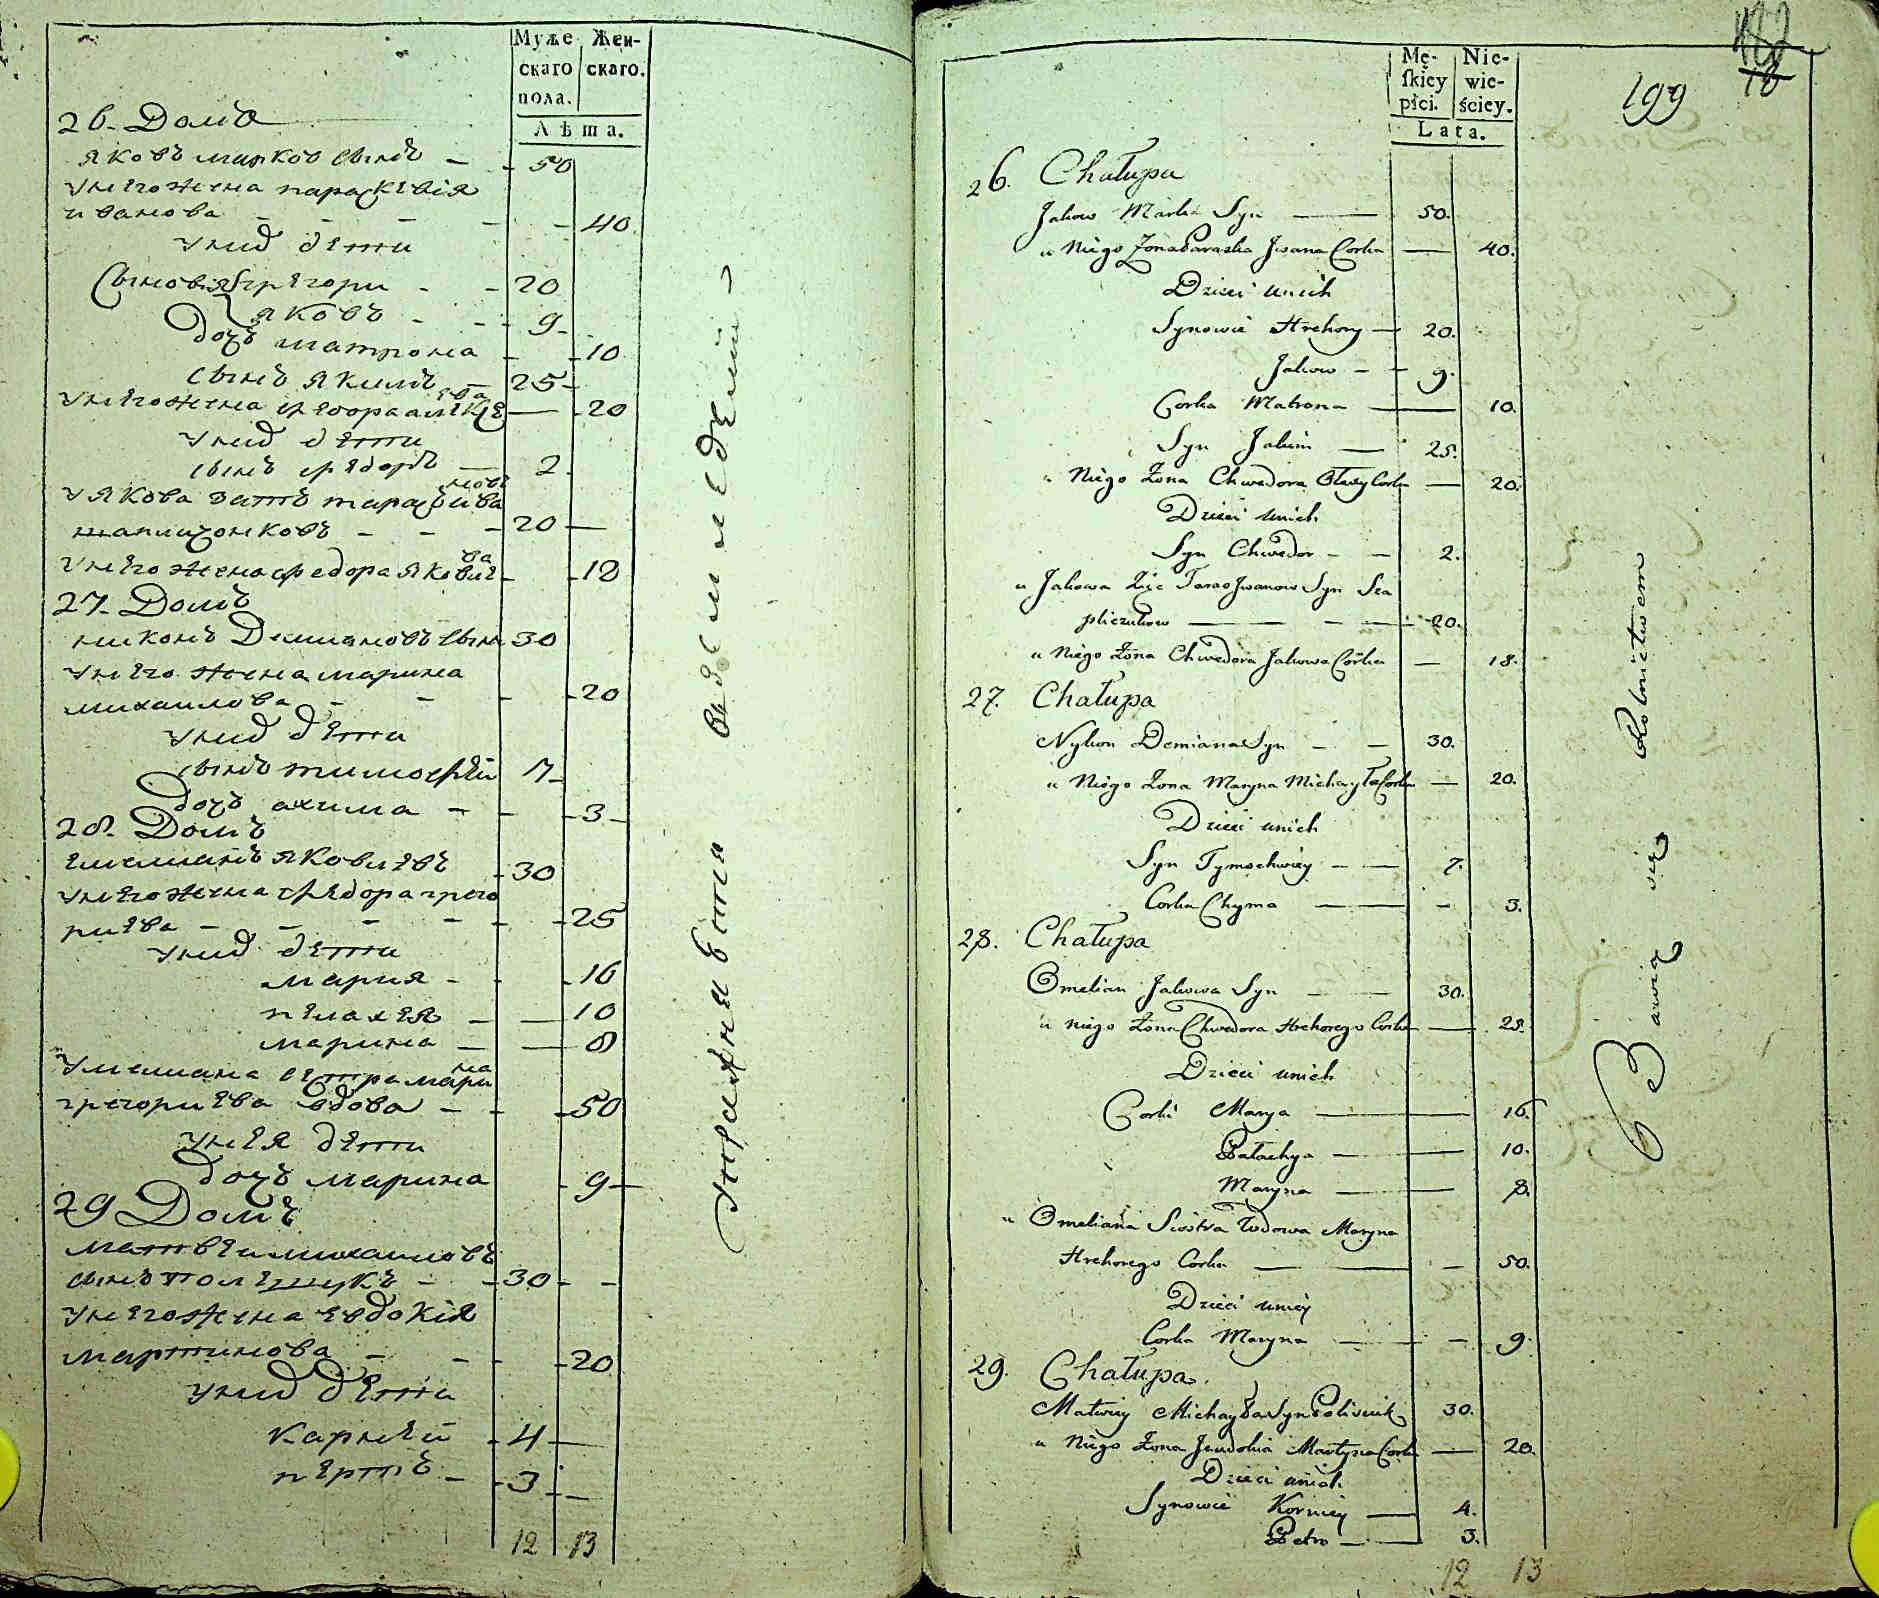 Муже Жен-
скаго скаго.
пола.
Лѣта.
26. Домъ
яковъ марков сынъ - - 50
унего жена параскевия
иванова - - - - - 40
уних дети
сыновя грегори - - 20
яковъ - - 9
дочъ матрона - - 10
сынъ якимъ - 25
унего жена федора алексеева — 20
уних дети
сынъ федоръ — 2
у якова зять тарас иванов
шапличонковъ - - - 20 —
унего жена федора яковлева - - 18
27. Домъ
никонъ Демияновъ сынъ 30
унего жена марина
михаилова - - - - 20
уних дети
сынъ тимофей 7
дочъ ахима - - - 3
28. Домъ
емелиянъ яковлевъ - 30
унего жена федора грего
риева - - - - - 25
уних дети
мария - - - 16
пелахея — — 10
марина — — 8
умелияна сестра марина
грегориева вдова - - - 50
унея дети
дочъ марина - 9
29 Домъ
матвеи михаиловъ
сынъ полещукъ - - 30 - -
унего жена евдокия
мартинова - - - - 20
уних дети
карней - 4 —
петръ - - 3 - -
12 13
упражняется вземледелии
182
18
199
Mę- Nie-
skiey wie-
płci. ściey.
Lata.
26. Chałupa
Jakow Marka Syn — 50.
u Niego Żona Paraska Jwana Corka — 40.
Dzieci unich
Synowie Hrehory — 20.
Jakow - - 9.
Corka Matrona — 10.
Syn Jakim — 25.
u Niego Żona Chwedora Corka — 20.
Dzieci unich
Syn Chwedor - - 2.
u Jakowa Zięć Taras Jwanow Syn Sza
pliczukow — — - - 20.
u Niego Żona Chwedora Jakowa Corka — 18.
27. Chałupa
Nykon Demiana Syn - - 30.
u Niego Żona Maryna Michayła Corka — 20.
Dzieci unich
Syn Tymochwiey - — 7.
Corka Chyma — - 3.
28. Chałupa
Omelian Jakowa Syn - — 30.
u niego Żona Chwedora Hrehorego Corka — 25.
Dzieci unich
Corki Marya — 16.
Pałachya — 10.
Maryna — 8.
u Omeliana Siostra Wdowa Maryna
Hrehorego Corka — — - 50.
Dzieci uniey
Corka Maryna — - 9.
29. Chałupa.
Matwiey Michayła Syn Poliszuk 30.
u Niego Żona Jewdokia Martyna Corka — 20.
Dzieci unich
Synowie Korniey — 4.
Petro — 3.
12 13
Bawią się Rolnictwem